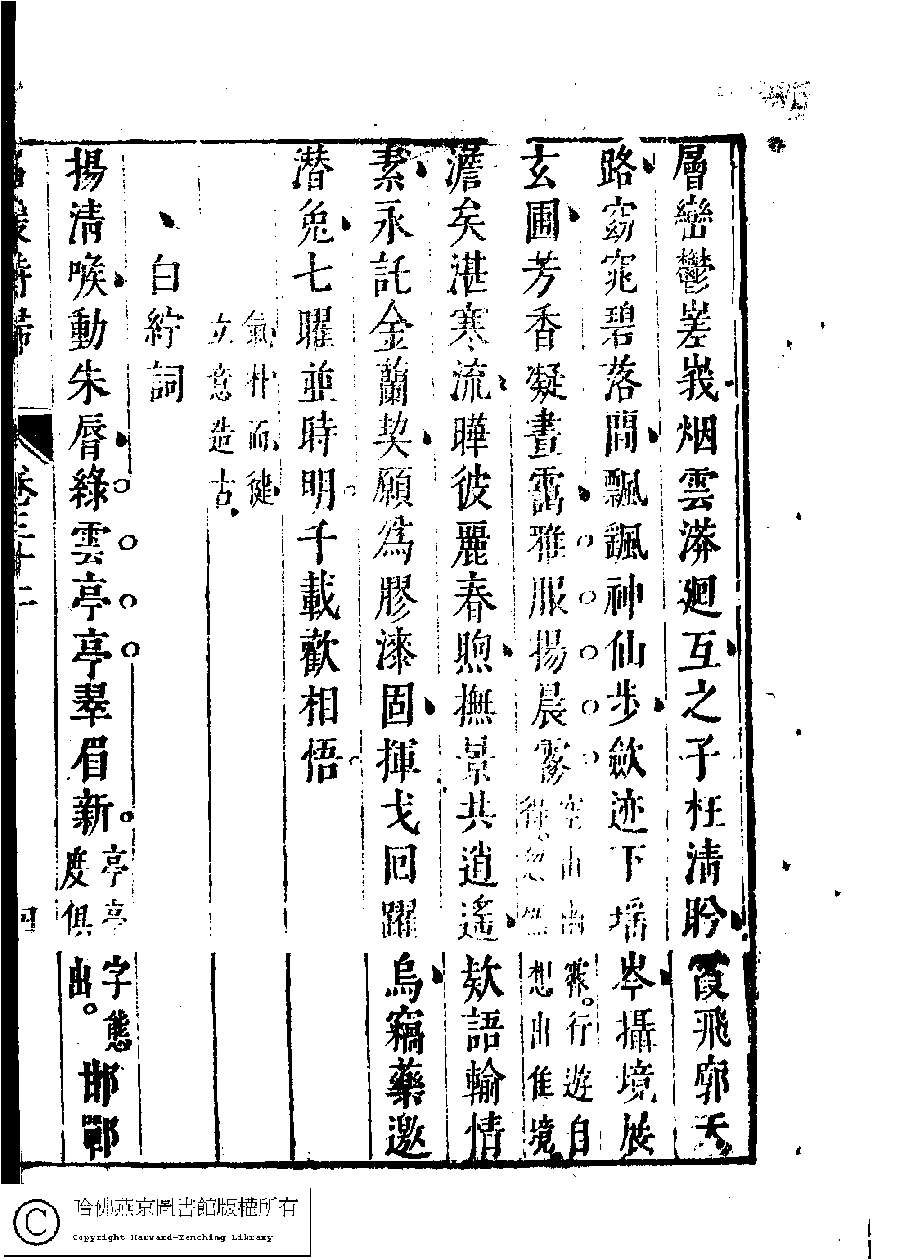 層巒鬱嵳峩烟雲漭廻互之子枉清聆霞飛廓天
路窈窕碧落間飄颻神仙步歛迹下瑶岑攝境展
玄圃芳香凝晝靄雅服揚晨霧
霖。行遊自
想出佳境
澹矣湛寒流曄彼麗春煦撫景共逍遙欵語輸情
素永託金蘭契願為膠漆固揮戈回躍烏竊藥邀
潜兔七曜並時明千載歡相悟
氣朴而健
立意造古
白紵詞
揚清喉動朱脣綠雲亭亭翠眉新
亭亭字態
度俱出。
邯鄲
卷三十二
四
哈佛燕京圖書館版權所有
Copyright Harvard-Yenching Library